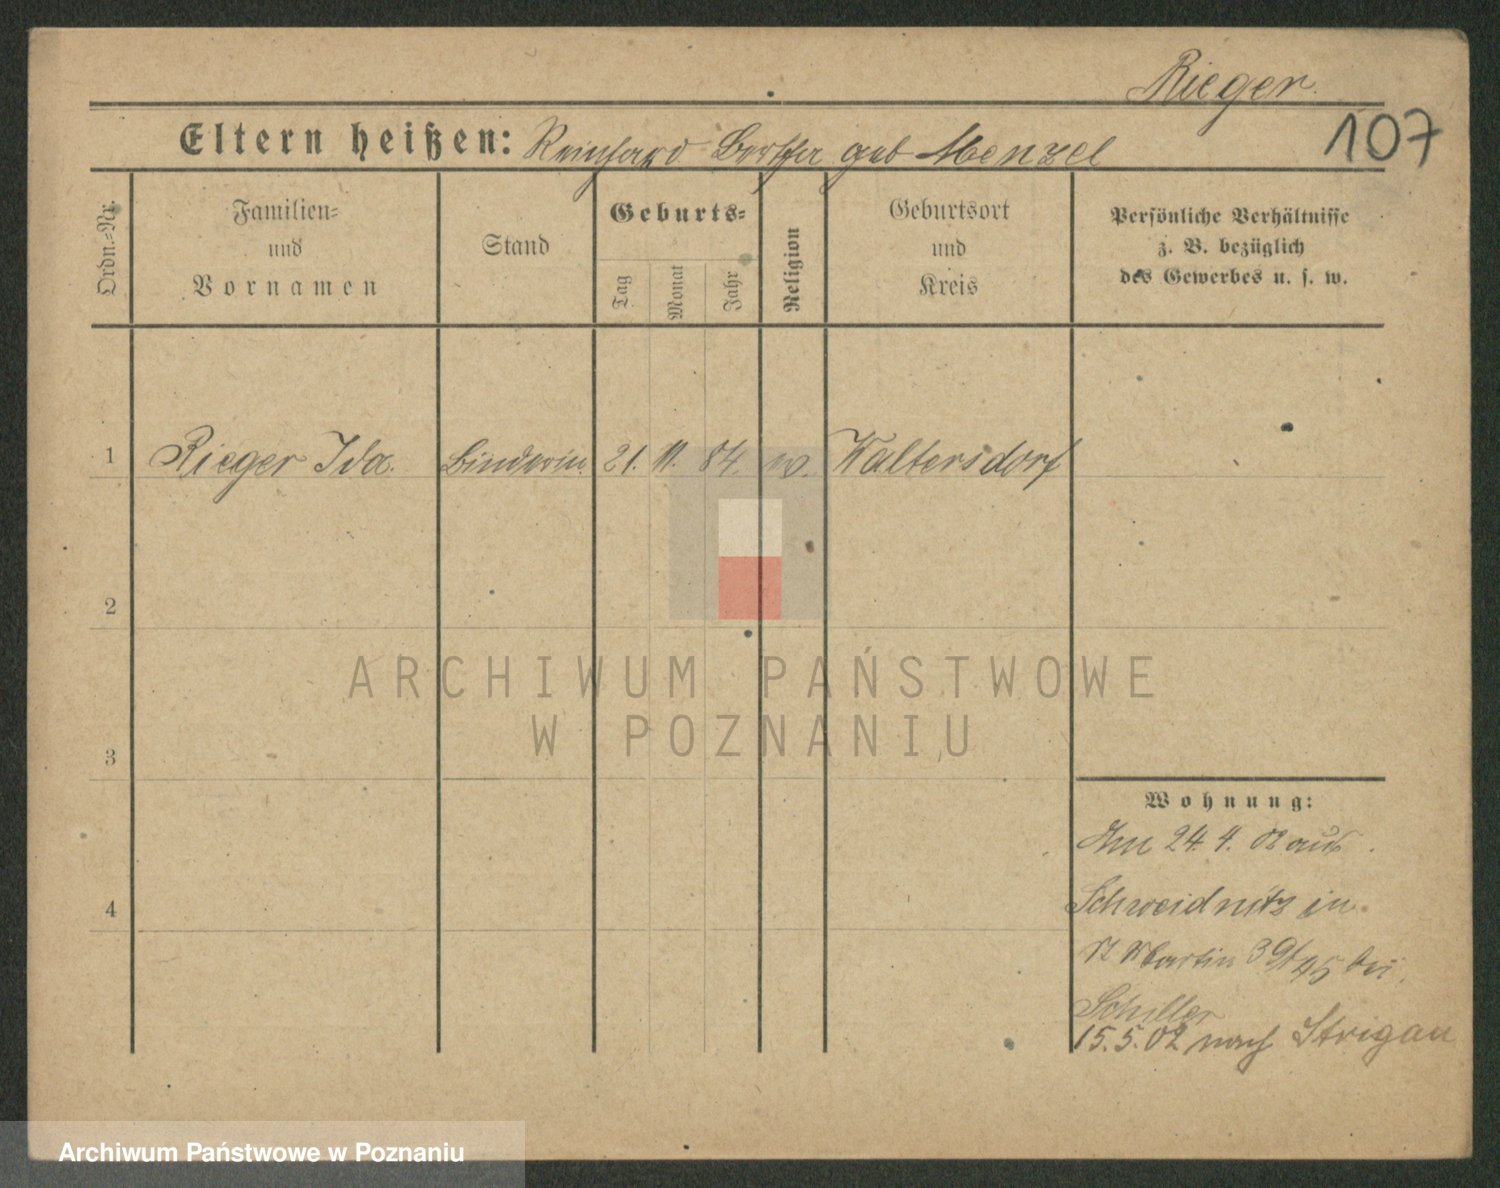 Rieger.
107
Eltern heißen: Reinhard Bertha geb Menzel
Ordn.=Nr.
Familien=
und
Vornamen
Stand
Geburts=
Tag
Monat
Jahr
Religion
Geburtsort
und
Kreis
Persönliche Verhältnisse
z. B. bezüglich
des Gewerbes u. s. w.
1 Rieger Ida. Binderin. 21. 11. 84. w. Waltersdorf
2
3
4
ARCHIWUM PAŃSTWOWE
W POZNANIU
Wohnung:
Am 24. 4. 02 aus
Schweidnitz in
St Martin 39/45 bei
Schiller
15. 5. 02 nach Strigau
Archiwum Państwowe w Poznaniu